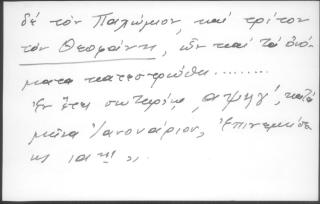 δέ τόν Παχώμιον, καί τρίτον
τόν Θεοφάνη, ὧν καί τά ὀνό-
ματα κατεστρώθη.........
Ἐν ἔτει σωτηρίῳ ,αψηγ', κατά
μῆνα Ἰανουάριον, Ἐπινεμήσε
ως ιαης,,